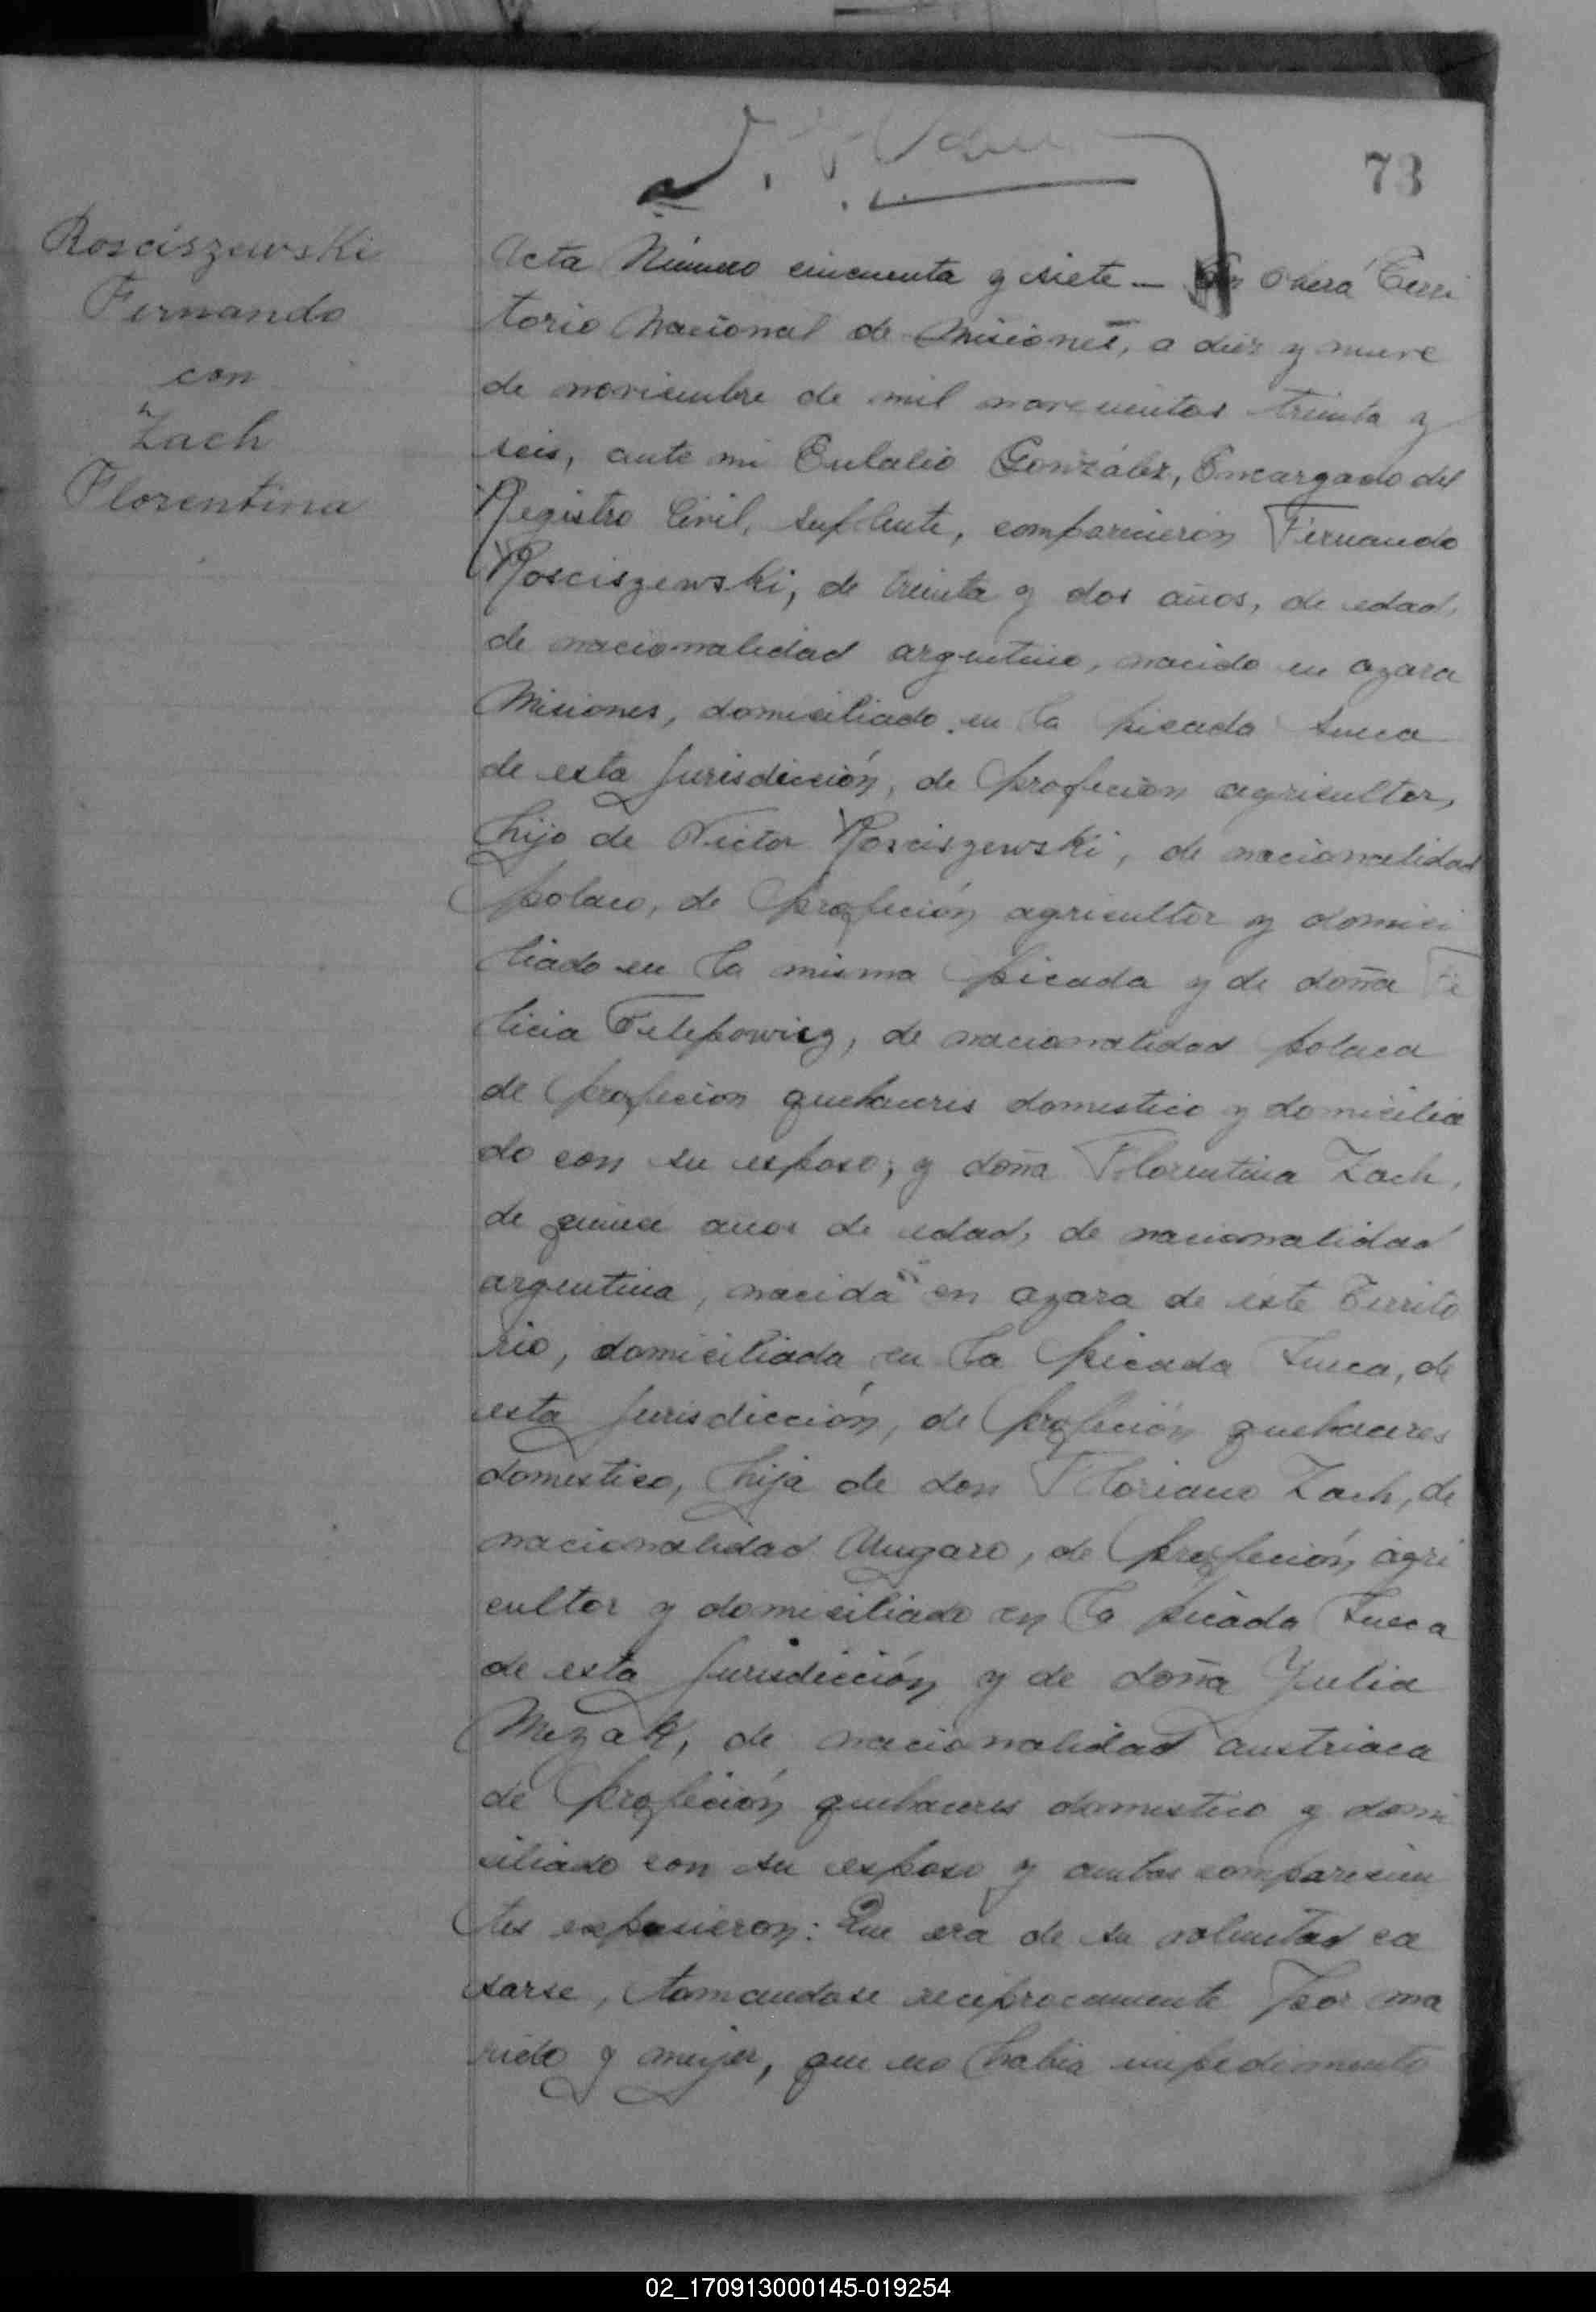 73
Rosciszewski
Fernando
con
Zach
Florentina
Acta Número cincuenta y siete — En Oberá Terri
torio Nacional de Misiones, a diez y nueve
de noviembre de mil novecientos treinta y
seis, ante mi Eulalio González, Encargado del
Registro Civil, Suplente, comparecieron Fernando
Rosciszewski, de treinta y dos años, de edad,
de nacionalidad argentino, nacido en azara
Misiones, domiciliado en la picada Sueca
de esta Jurisdicción, de profeción agricultor,
hijo de Victor Rosciszewski, de nacionalidad
polaco, de profeción agricultor y domici
liado en la misma picada y de doña Fe
licia Filipowicz, de nacionalidad polaca
de profecion quehaceres domestico y domicilia
do con su esposo; y doña Florentina Zach,
de quince años de edad, de nacionalidad
argentina, nacida en azara de este Territo
rio, domiciliada en la picada Sueca, de
esta Jurisdicción, de profeción quehaceres
domestico, hija de don Floriano Zach, de
nacionalidad Ungaro, de profeción agri
cultor y domiciliado en la picada Sueca
de esta Jurisdicción y de doña Yulia
Mezak, de nacionalidad austriaca
de profeción quehaceres domestico y domi
ciliado con su esposo y ambos comparecien
tes expusieron: Que era de su voluntad ca
sarse, tomandose reciprocamente por ma
rido y mujer, que no habia impedimento
02_170913000145-019254